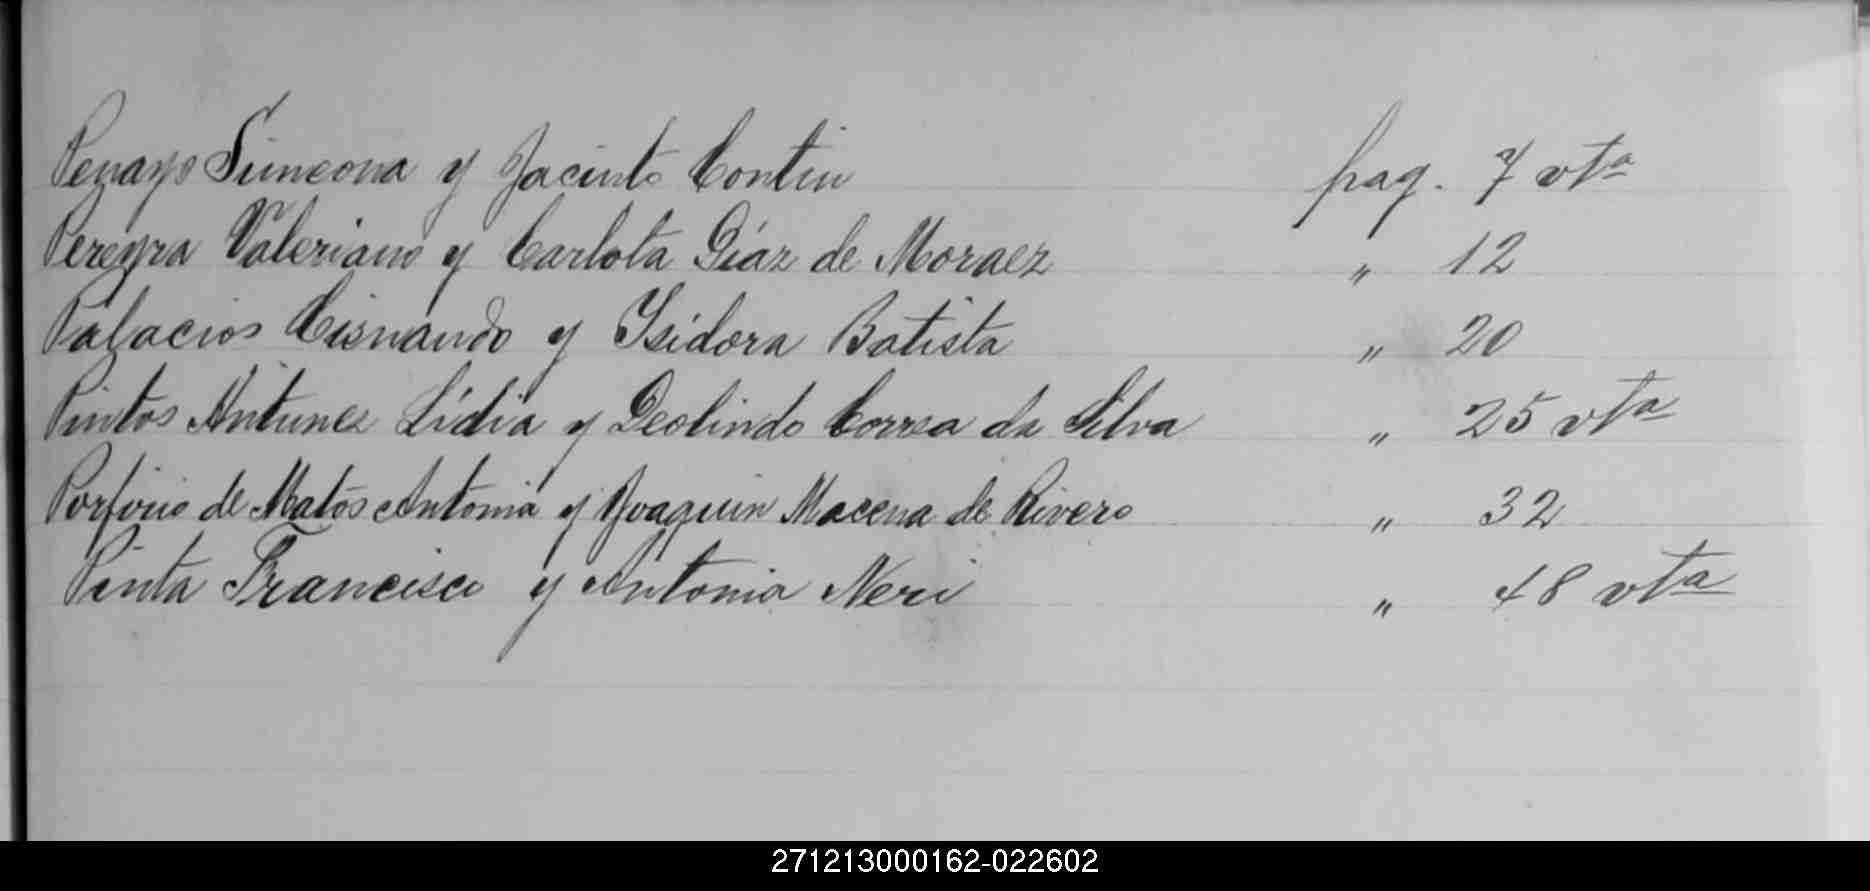 Penayo Simeona y Jacinto Contin pag. 7 vta
Pereyra Valeriano y Carlota Díaz de Moraez " 12
Palacios Cisnando y Ysidora Batista " 20
Pintos Antunez Lídia y Deolindo Correa da Silva " 25 vta
Porfirio de Matos Antonia y Joaquin Macena de Rivero " 32
Pinta Francisco y Antonia Neri " 48 vta
271213000162-022602